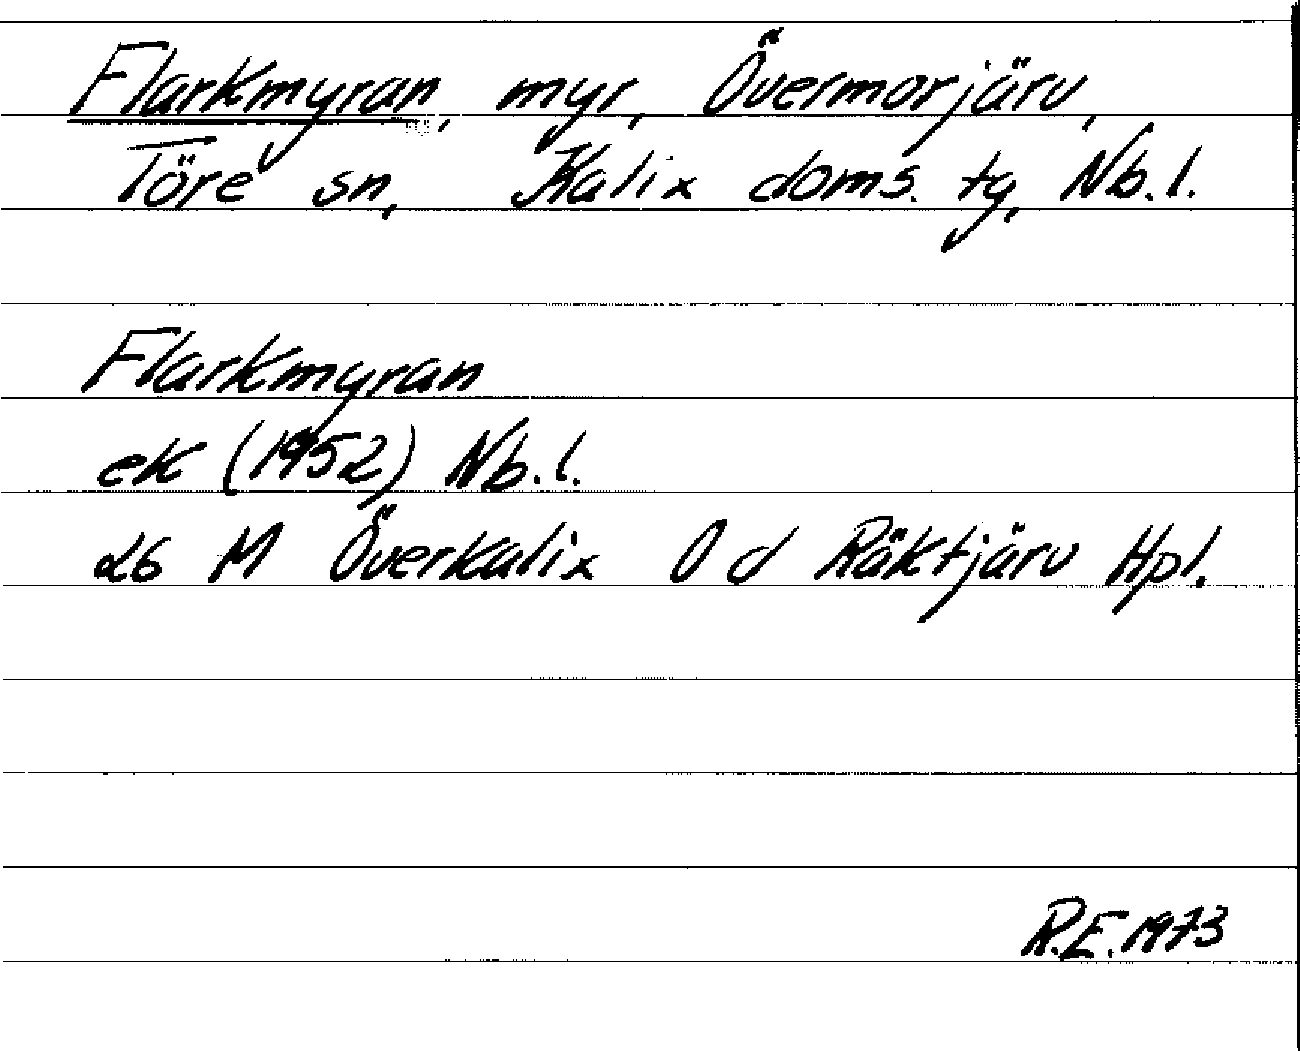 Flarkmyran, myr, Övermorjärv,
Töre sn, Kalix doms. tg, Nb.l.
Flarkmyran
ek (1952) Nb.l.
26 M Överkalix 0 d Räktjärv Hpl.
R.E. 1973